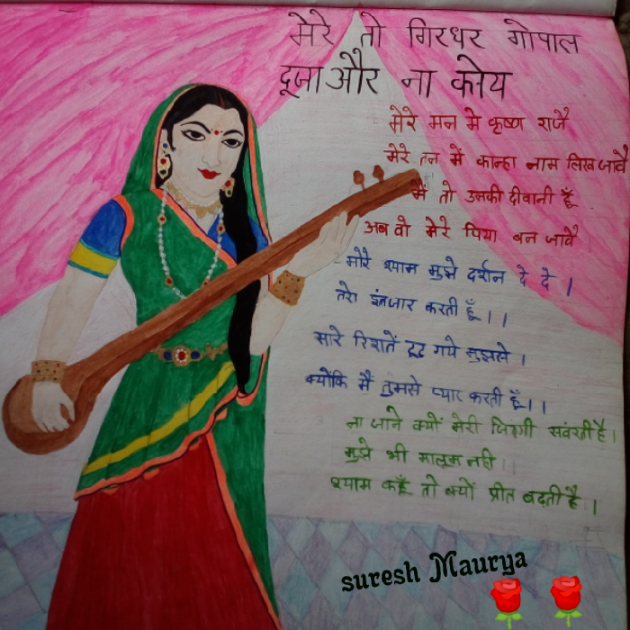 मेरे तो गिरधर गोपाल
दूजा और ना कोय
मेरे मन मे कृष्ण राजै
मेरे तन में कान्हा नाम लिख जावै
मैं तो उनकी दीवानी हूँ
अब वो मेरे पिया बन जावै
मोरे श्याम मुझे दर्शन दे दे ।
तेरा इंतजार करती हूँ ।।
सारे रिशतें टूट गये मुझसे ।
क्योंकि मैं तुमसे प्यार करती हूँ ।।
ना जाने क्यों मेरी जिन्दगी संवरती है ।
मुझे भी मालूम नही ।
श्याम कहूँ तो क्यों प्रीत बढ़ती है ।
suresh Maurya